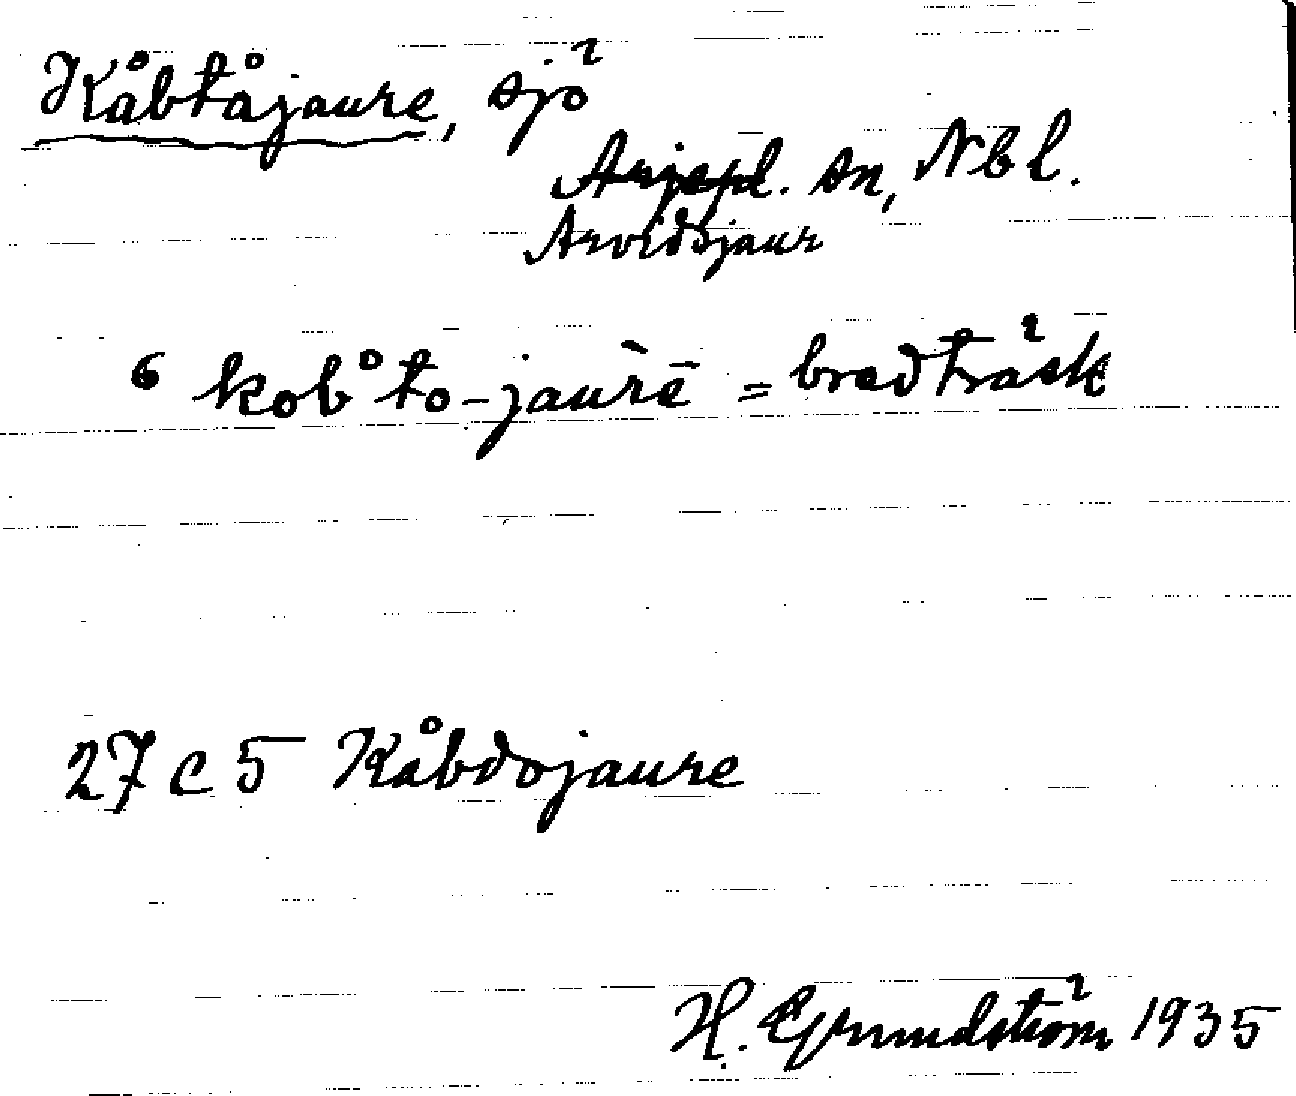 Kåbtåjaure, sjö
Arjepl. sn, Nbl.
Arvidsjaur
6 kob°to-jaùrē = bredträsk
27 C 5 Kåbdojaure
H. Grundström 1935